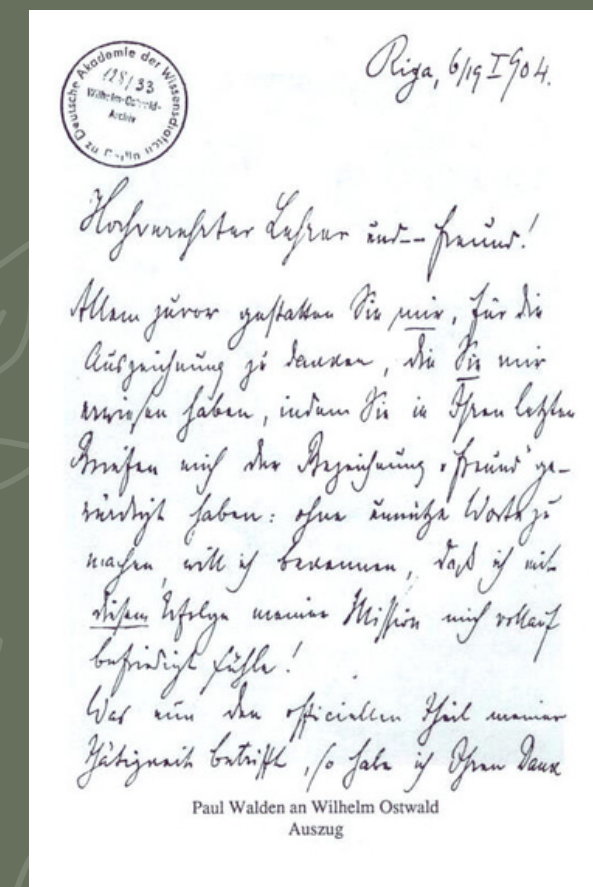 Deutsche Akademie der Wissenschaften zu
128/33
Wilhelm-Ostwald-
Archiv
Riga, 6/19 I 904.
Hochverehrter Lehrer und -- Freund!
Allem zuvor gestatten Sie mir, für die
Auszeichnung zu danken, die Sie mir
erwiesen haben, indem Sie in Ihren letzten
Briefen mich der Bezeichnung „Freund" ge-
würdigt haben: ohne unnütze Worte zu
machen, will ich bekennen, daß ich mit
diesem Erfolge meiner Mission mich vollauf
befriedigt fühle!
Was nun den officiellen Theil meiner
Thätigkeit betrifft, so habe ich Ihren Dank
Paul Walden an Wilhelm Ostwald
Auszug